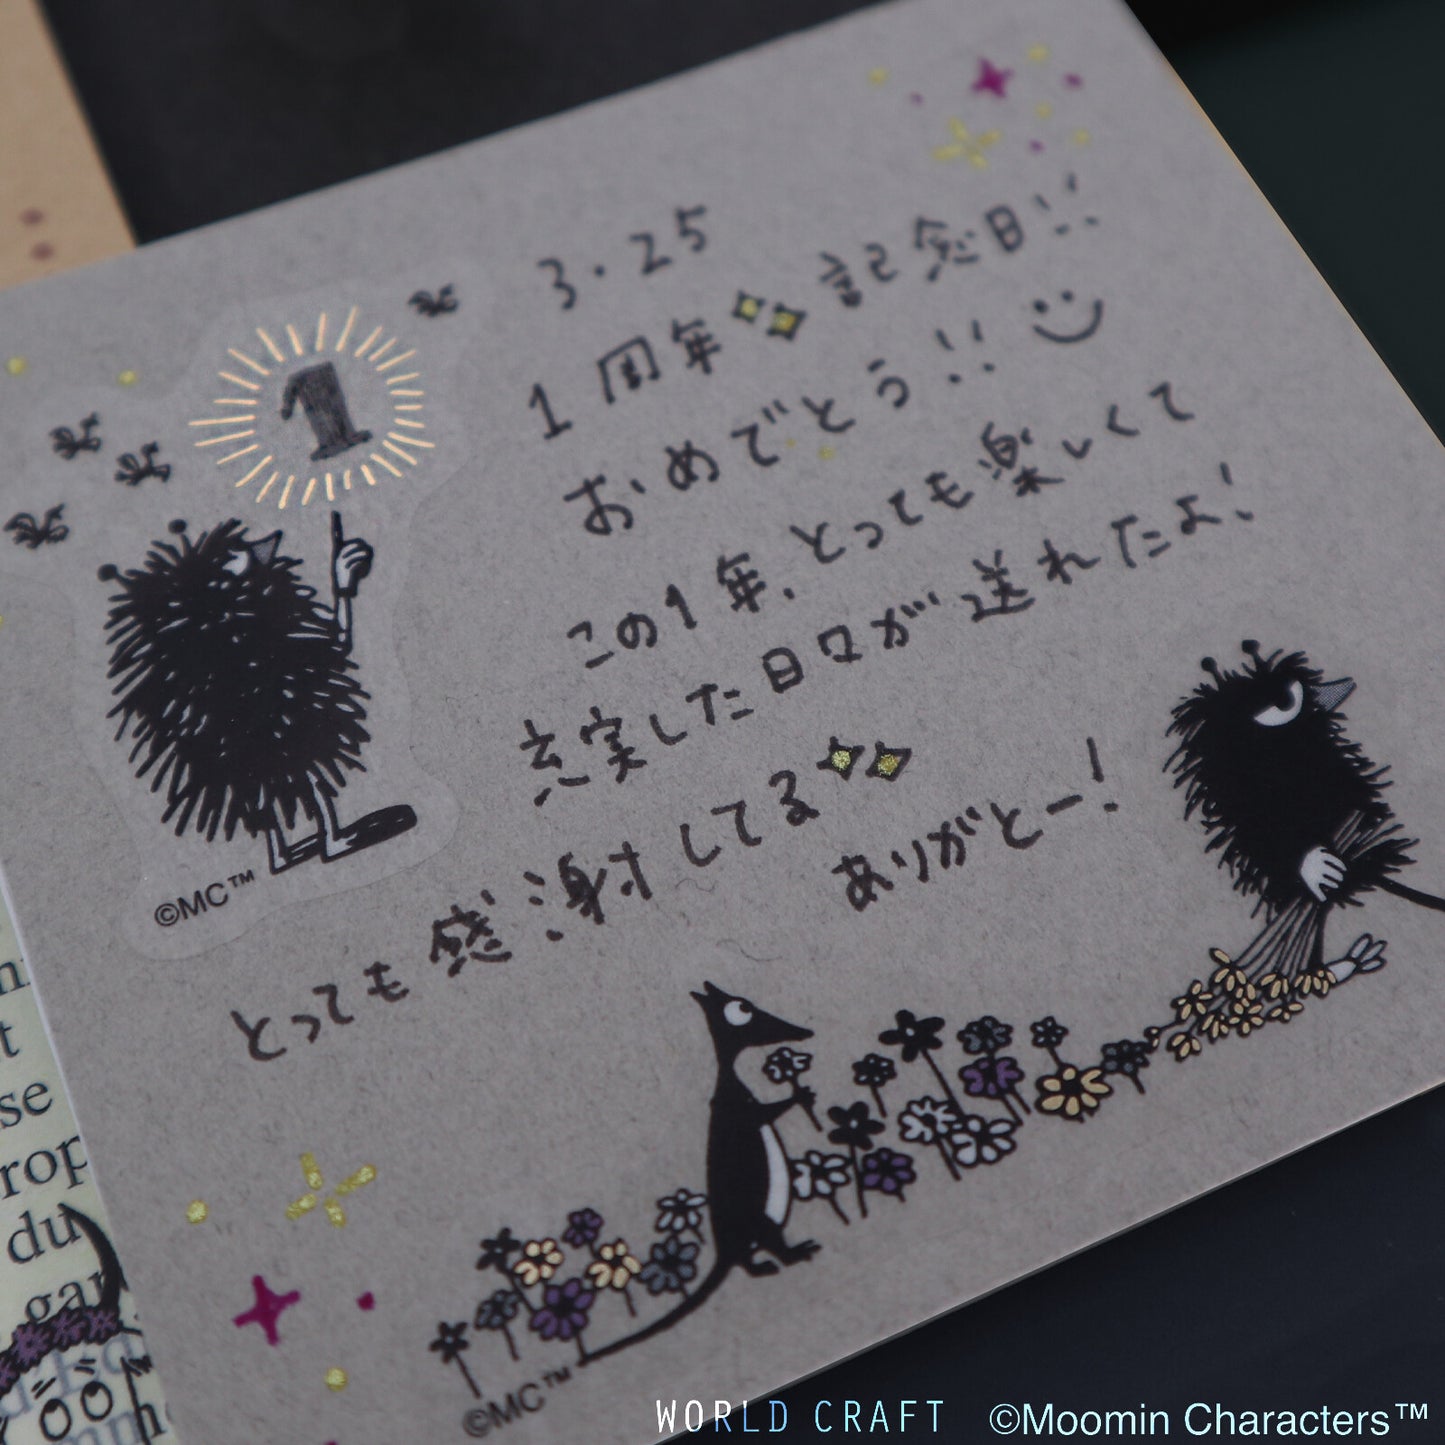 3.25
1周年 記念日!!
おめでとう!!
この1年、とっても楽しくて
充実した日々が送れたよ!
とっても感謝してる
ありがとー!
1
©MC™
©MC™
se
du
WORLD CRAFT ©Moomin Characters™